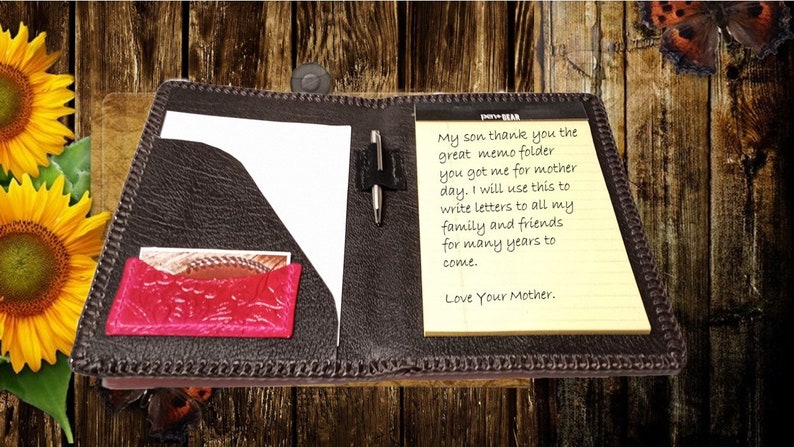 pen+GEAR
My son thank you the
great memo folder
you got me for mother
day. I will use this to
write letters to all my
family and friends
for many years to
come.
Love Your Mother.